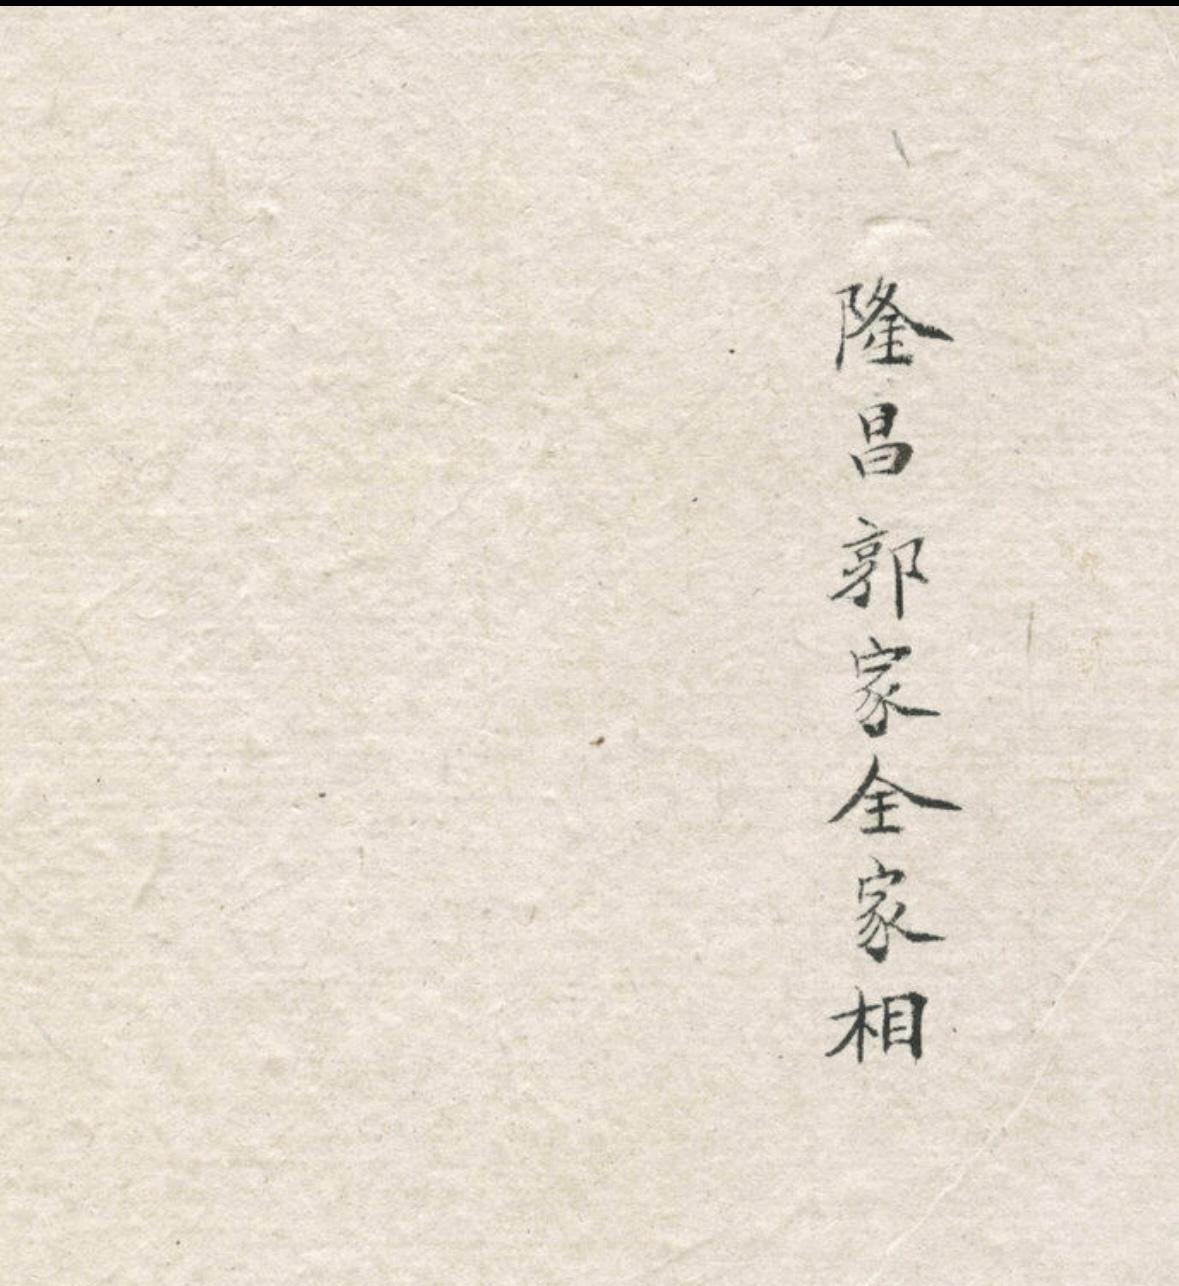 隆昌郭家全家相